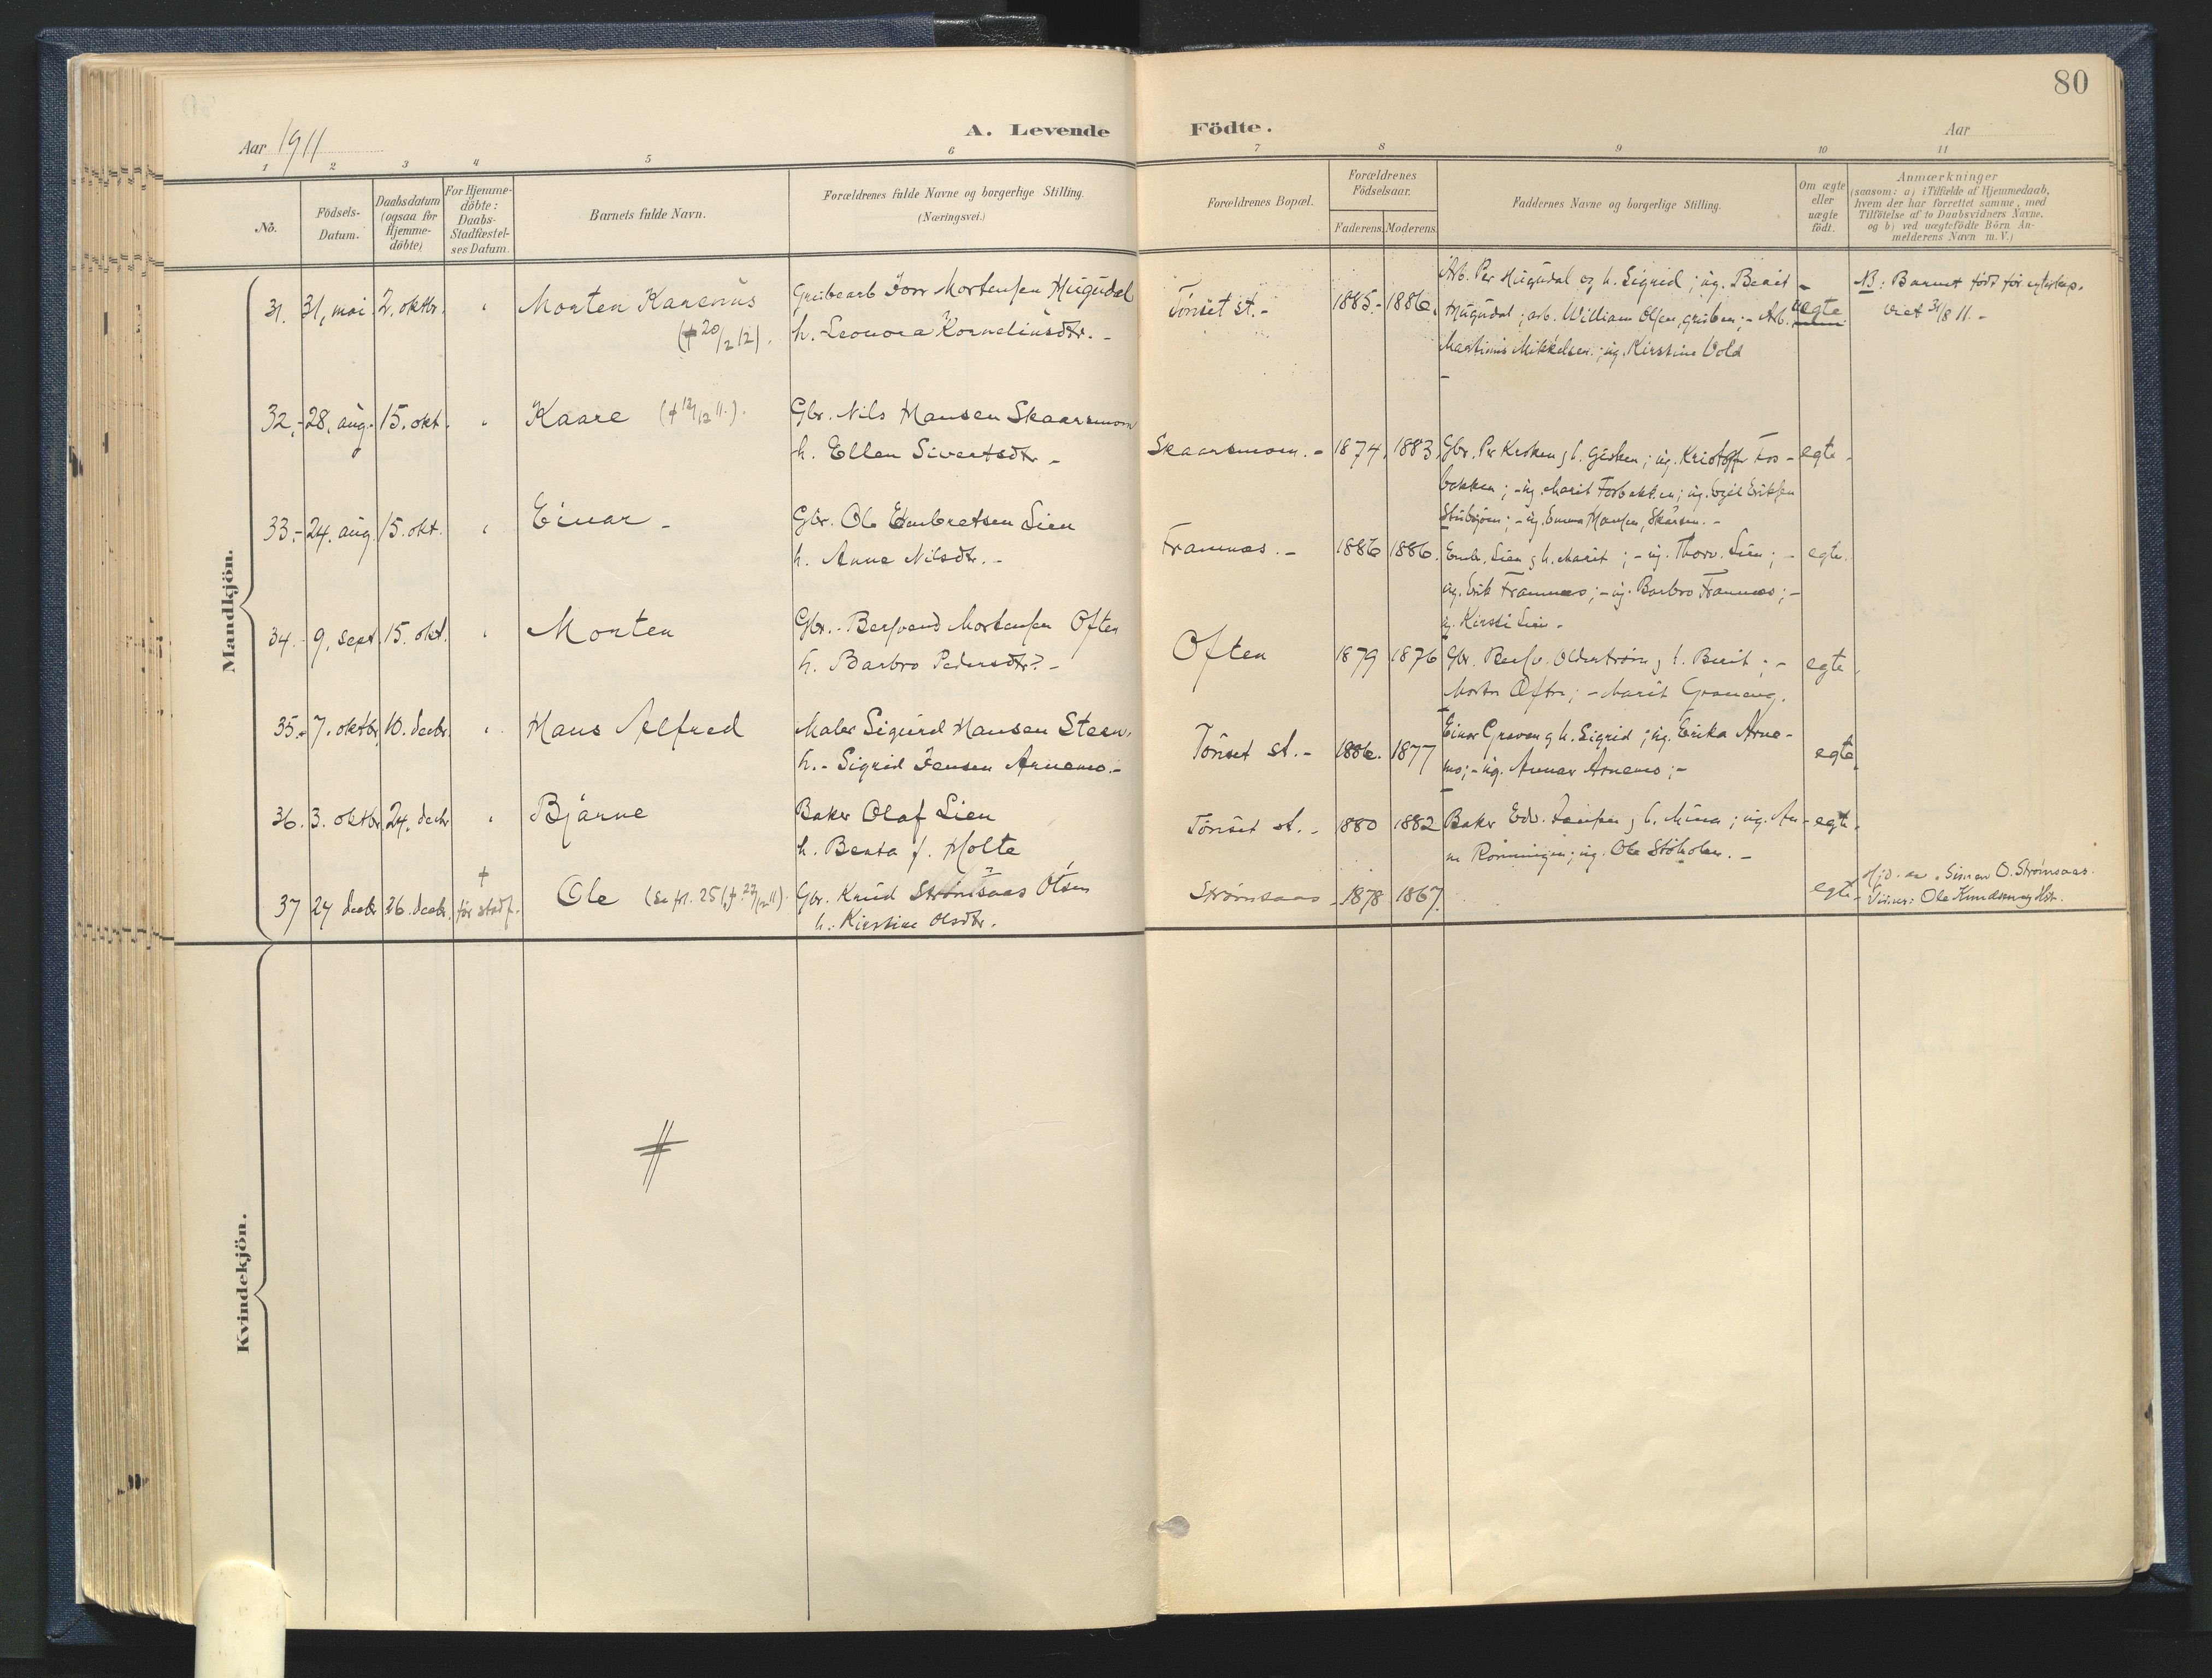 80
Aar 1911
A. Levende Födte.
Aar
1 2 3 4 5 6 7 8 9 10 11
No.
Födsels-
Datum.
Daabsdatum
(ogsaa for
Hjemme-
döbte)
For Hjemme-
döbte:
Daabs-
Stadfæstel-
ses Datum.
Barnets fulde Navn.
Forældrenes fulde Navne og borgerlige Stilling.
(Næringsvei.)
Forældrenes Bopæl.
Forældrenes
Födselsaar.
Faderens. Moderens.
Faddernes Navne og borgerlige Stilling.
Om ægte
eller
uægte
født.
Anmærkninger
(saasom: a) i Tilfælde af Hjemmedaab,
hvem der har forrettet samme, med
Tilföielse af to Daabsvidners Navne,
og b) ved uægtefödte Börn An-
melderens Navn m. V.)
Mandkjön.
31. 31, mai 2. oktbr. Morten Karenus
(† 20/2 12).
Grubearb Torr Mortensen Hugudal
h. Leonora Korneliusdtr. -
Tönset st. - 1885 - 1886.
Arb. Per Hugudal og h. Sigrid; ug. Berit -
Hugudal; arb. William Olsen, gruben; - Arb.
Martinus Mikkelsen; ug. Kirstine Vold
-
uegte
NB: Barnet født før egteskap.
viet 31/8 11. -
32. - 28. aug. 15. okt. Kaare († 12/12 11.).
Gbr. Nils Hansen Skaarsmoen
h. Ellen Sivertsdtr -
Skaarsmoen. - 1874. 1883.
Gbr. Per Kroken g h. Gisken; ug. Kristoffer Fos-
bakken; - ug. Marit Fosbakken; ug. Eriksen
Stubsjøen; - ug. Emma Hansen, Skårsm. -
egte -
33. - 24. aug. 15. okt. Einar -
Gbr. Ole Embretsen Lien
h. Anne Nilsdtr. -
Framnæs. - 1886 1886.
Embr. Lien g h. Marit; - ug. Thorv. Lien; -
ug. Erik Framnæs; - ug. Barbro Framnæs; -
ug. Kirsti Lien -
egte.
34. - 9. sept. 15. okt. Morten
Gbr. - Bersvend Mortensen Often
h. Barbro Pedersdtr? -
Often 1879 1876
Gbr. Bersv. Oldertrøen g h. Berit; -
Morten Often; - Marit Graneng.
egte.
35. - 7. oktbr. 10. decbr. Hans Alfred
Maler Sigurd Hansen Steen.
h. - Sigrid Jensen Arnemo. -
Tönset st. - 1886. 1877
Einar Gravem g h. Sigrid; ug. Erika Arne-
mo; - ug. Annar Arnemo; -
egte.
36. 3. oktbr. 24. decbr Bjarne
Baker Olaf Lien
h. Berta f. Holte
Tönset st. - 1880 1882
Baker Edv. g h. Mina; ug. An-
na Rönningen; ug. Ole Stöholen. -
egte.
37 24 decbr 26. decbr. † før stadf. Ole (Se frl. 25 († 27/12 11).
Gbr. Knud Strömsaas Olsen
h. Kirstine Olsdtr.
Strömsaas - 1878 1867.
egte -
Hjd. av Simen O. Strømsaas.
Vidner: Ole Knudsen og Hstr.
Kvindekjön.